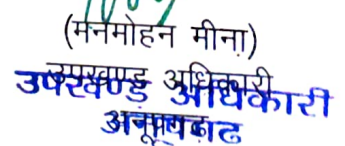 (मनमोहन मीना)
उपखण्ड अधिकारी
उपखण्ड अधिकारी
अनूपगढ